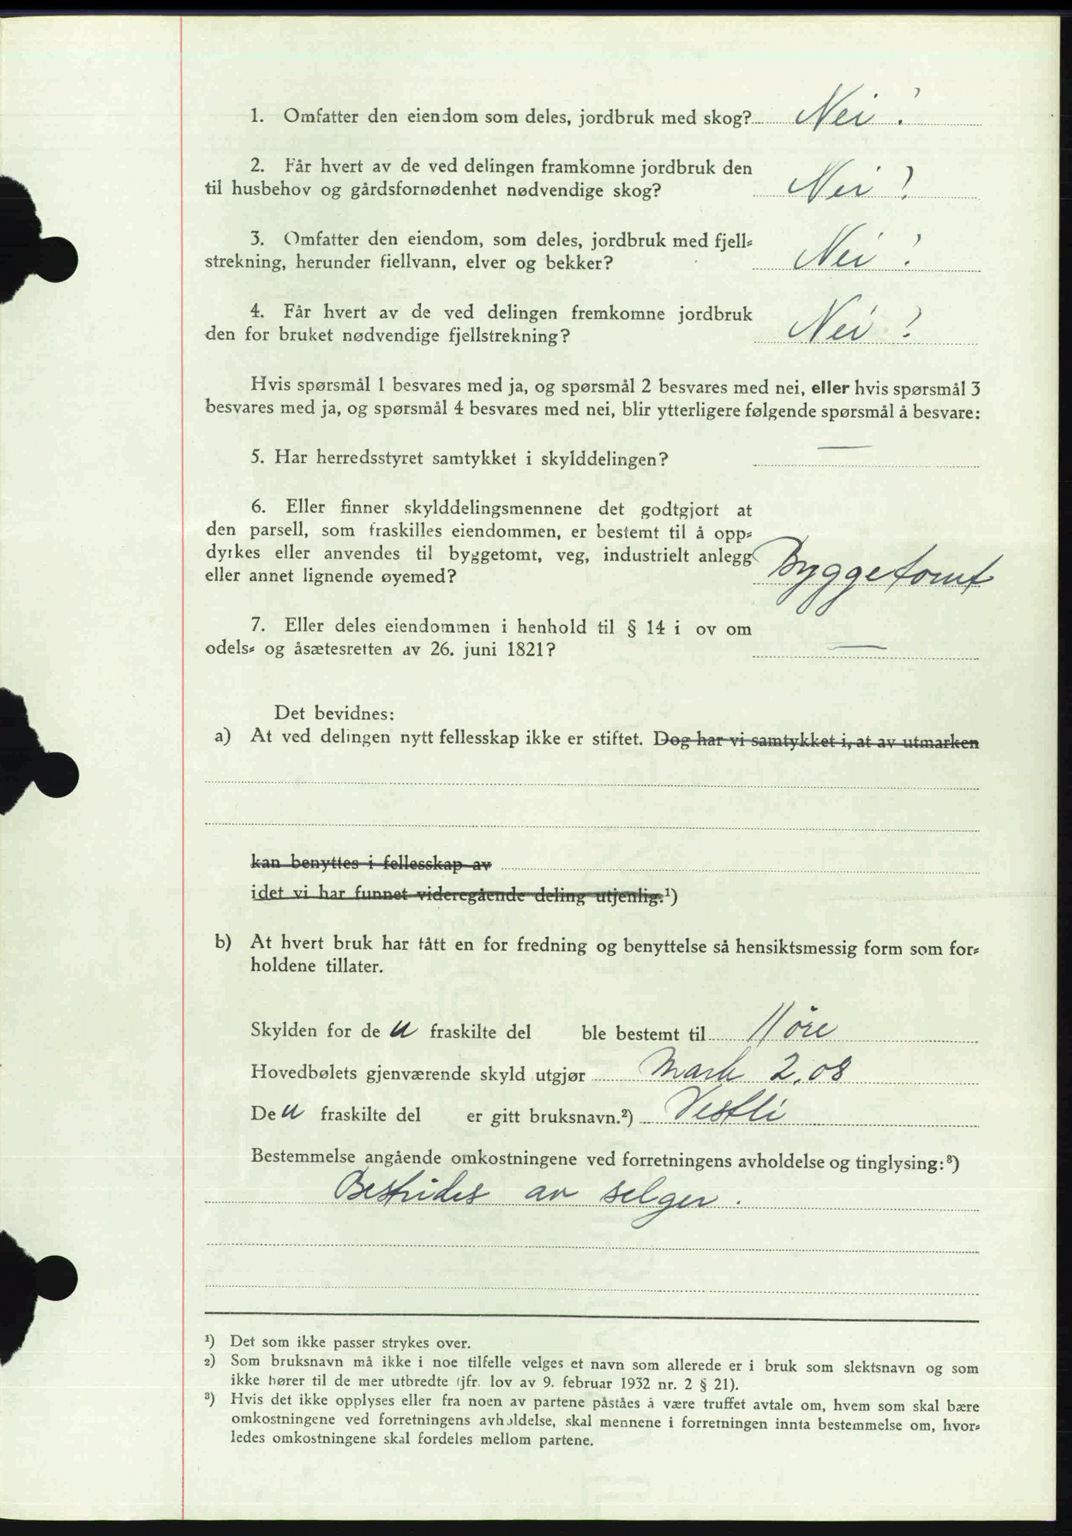 1. Omfatter den eiendom som deles, jordbruk med skog? Nei!
2. Får hvert av de ved delingen framkomne jordbruk den
til husbehov og gårdsfornødenhet nødvendige skog? Nei!
3. Omfatter den eiendom, som deles, jordbruk med fjell-
strekning, herunder fiellvann, elver og bekker? Nei!
4. Får hvert av de ved delingen fremkomne jordbruk
den for bruket nødvendige fjellstrekning? Nei!
Hvis spørsmål 1 besvares med ja, og spørsmål 2 besvares med nei, eller hvis spørsmål 3
besvares med ja, og spørsmål 4 besvares med nei, blir ytterligere følgende spørsmål å besvare:
5. Har herredsstyret samtykket i skylddelingen? —
6. Eller finner skylddelingsmennene det godtgjort at
den parsell, som fraskilles eiendommen, er bestemt til å opp-
dyrkes eller anvendes til byggetomt, veg, industrielt anlegg
eller annet lignende øyemed? Byggetomt
7. Eller deles eiendommen i henhold til § 14 i ov om
odels- og åsætesretten av 26. juni 1821? —
Det bevidnes:
a) At ved delingen nytt fellesskap ikke er stiftet. Dog har vi samtykket i, at av utmarken
kan benyttes i fellesskap av
idet vi har funnet videregående deling utjenlig.¹)
b) At hvert bruk har fått en for fredning og benyttelse så hensiktsmessig form som for-
holdene tillater.
Skylden for de n fraskilte del ble bestemt til 11 øre
Hovedbølets gjenværende skyld utgjør Mark 2.08
De n fraskilte del er gitt bruksnavn.²) Vestli
Bestemmelse angående omkostningene ved forretningens avholdelse og tinglysing:³)
Bestrides av selger.
¹) Det som ikke passer strykes over.
²) Som bruksnavn må ikke i noe tilfelle velges et navn som allerede er i bruk som slektsnavn og som
ikke hører til de mer utbredte (jfr. lov av 9. februar 1932 nr. 2 § 21).
³) Hvis det ikke opplyses eller fra noen av partene påståes å være truffet avtale om, hvem som skal bære
omkostningene ved forretningens avholdelse, skal mennene i forretningen innta bestemmelse om, hvor-
ledes omkostningene skal fordeles mellom partene.